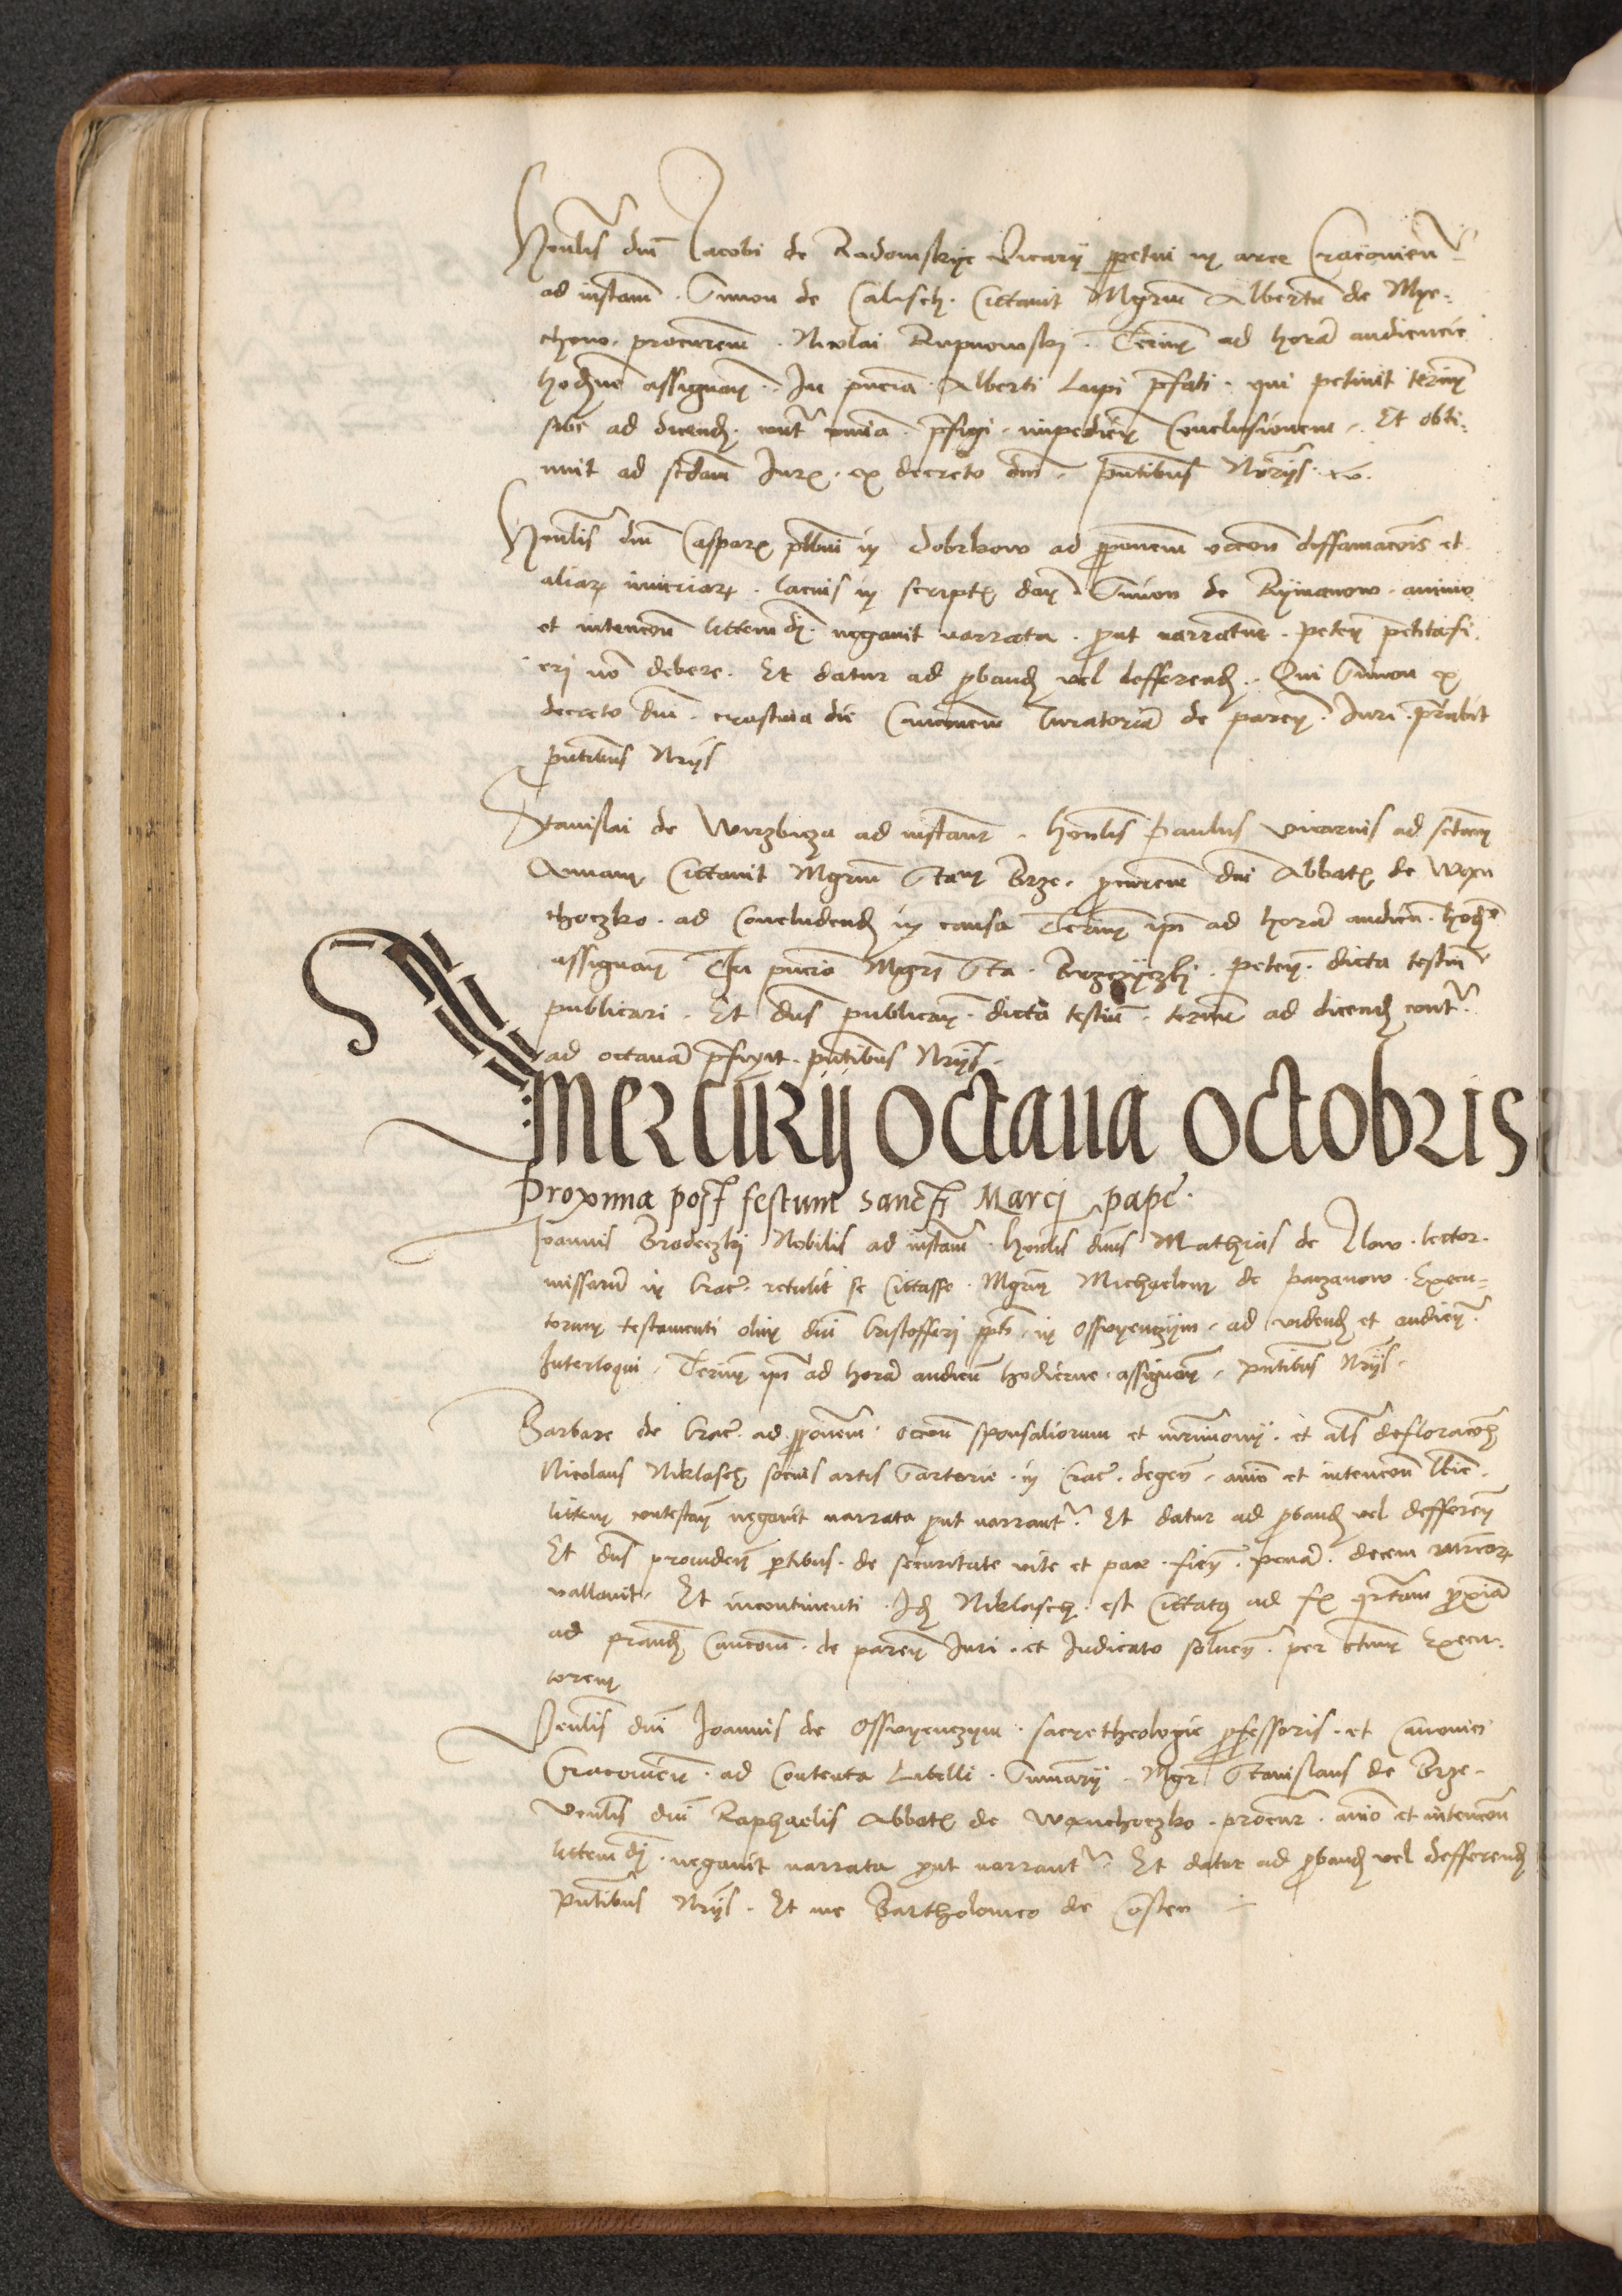 Honlis dni Jacobi de Radomskye Vicarij ppetui in arce Cracovien
ad instam. Simon de Calisch. Cittavit Mgrum Albertu de Mye-
chow. procurem. Nicolai Rupnowskj. Terim ad hora audiencie
hodierne assignan. In pncia Alberti Lupi pfati. qui petivit terim
sibi ad dicend. cont pfigi. impedien Conclusionem. Et obti-
nuit ad scdam Jur. ex decreto dni. pntibus Norijs
Honlis dni Caspar plbni in Dobrkow ad pponem occon diffamacois et
aliar iniuriar. laicus in script dan Simon de Rymanow. animo
et intencon littem. negavit narrata. put narratur. peten petita fi-
eri no debere. Et datur ad pband vel defferend. Qui Simon ex
decreto dni. crastina die Caucionem Juratoria de paren. Juri. pstabit
pntibus Nrijs
Stanislai de Wirzbicza ad instant. honlis Paulus vicarius ad sctam
Annam Cittavit Mgrum Stan Brze. pcurem dni Abbat de Wan
choczko. ad Concludend in causa Terim ipi ad hora audien. hod
assignan In pncia Mgri Sta. Brzezyczkj. peten. dicta testiu
publicari. Et dns publican. dicta testiu. terim ad dicend cont
ad octava pfixit. pntibus Nrijs.
Mercurij octava octobris
Proxima post festum sancti Marci pape.
Joannis Grodeczkj Nobilis ad instam. honlis dnus Mathias de Ilow. lector.
missaru in Crac. retulit se Cittasse. Mgrum Michaelem de paczanow. Execu-
torem testamenti olim dni Cristofferi ppti. in Osswyenczym. ad vidend et audien
Interloqui. Terim ipi ad hora audien hodierne. assignan. pntibus Nrijs.
Barbare de Crac. ad pponem. occon sponsaliorum et mrimonij. et als defloracois
Nicolaus Niklasch socius artis Sartorie. in Crac. degens. animo et intencon
littem contestan negavit narrata put narrant. Et datur ad pband vel defferen
Et dns providen ptibus. de securitate vite et pace. fien. pena. decem mrcar
vallavit. Et incontinenti. Id Niklasch. est Cittatus ad fer qrtam pxia
ad prand Caucom. de paren Juri. et Judicato solven. per Execu-
torem
Venlis dni Joannis de Osswyenczym. sacre theologie pfessoris. et Canonici
Cracovien. ad Contenta Libelli. Sumarij. Mgr Stanislaus de Brze.
Venlis dni Raphaelis Abbat de Wanchoczko. procur. animo et intencon
littem. negavit narrata put narrant. Et datur ad pband vel defferend
pntibus Nrijs. Et me Bartholomeo de Costen